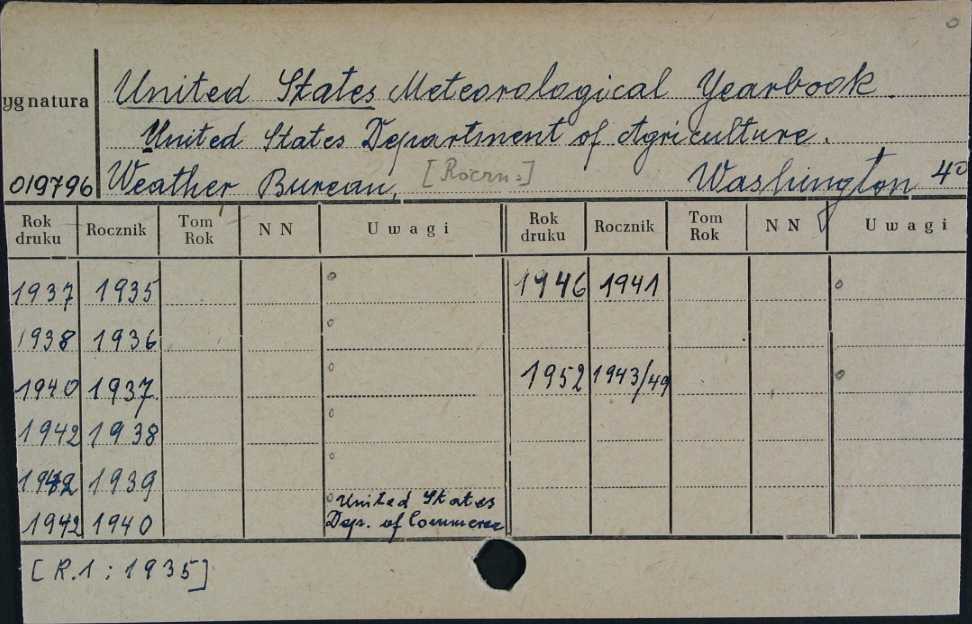 United States Meteorological Yearbook.
ygnatura
United States Department of Agriculture.
019796 Weather Bureau, [Roczn.] Washington 4°
Rok druku Rocznik Tom Rok N N Uwagi Rok druku Rocznik Tom Rok N N Uwagi
1937 1935 1946 1941
1938 1936
1940 1937. 1952 1943/49
1942 1938
1942 1939
1942 1940 United States Dep. of Commerce
[R.1 : 1935]